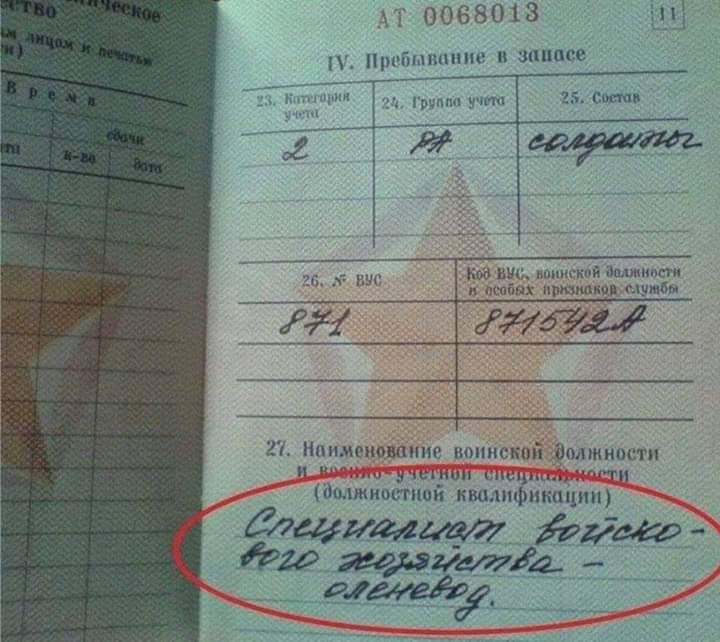 ческое
ство
м лицом и печатью
и)
Время
сдачи
к-во
дата
АТ 0068013
11
IV. Пребывание в запасе
23. Категория
учета
24. Группа учета
25. Состав
2
РА
солдаты
26. № ВУС
Код ВУС, воинской должности
и особых признаков службы
871
871542А
27. Наименование воинской должности
и военно-учетной специальности
(должностной квалификации)
Специалист войско-
вого хозяйства -
оленевод.